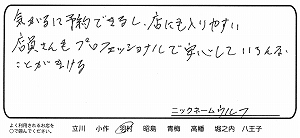 気がるに予約できるし、店にも入りやすい
店員さんもプロフェッショナルで安心していろんな
ことがきける
ニックネーム ウルフ
よく利用されるお店を
○で囲んでください。
立川 小作 羽村 昭島 青梅 高幡 堀之内 八王子